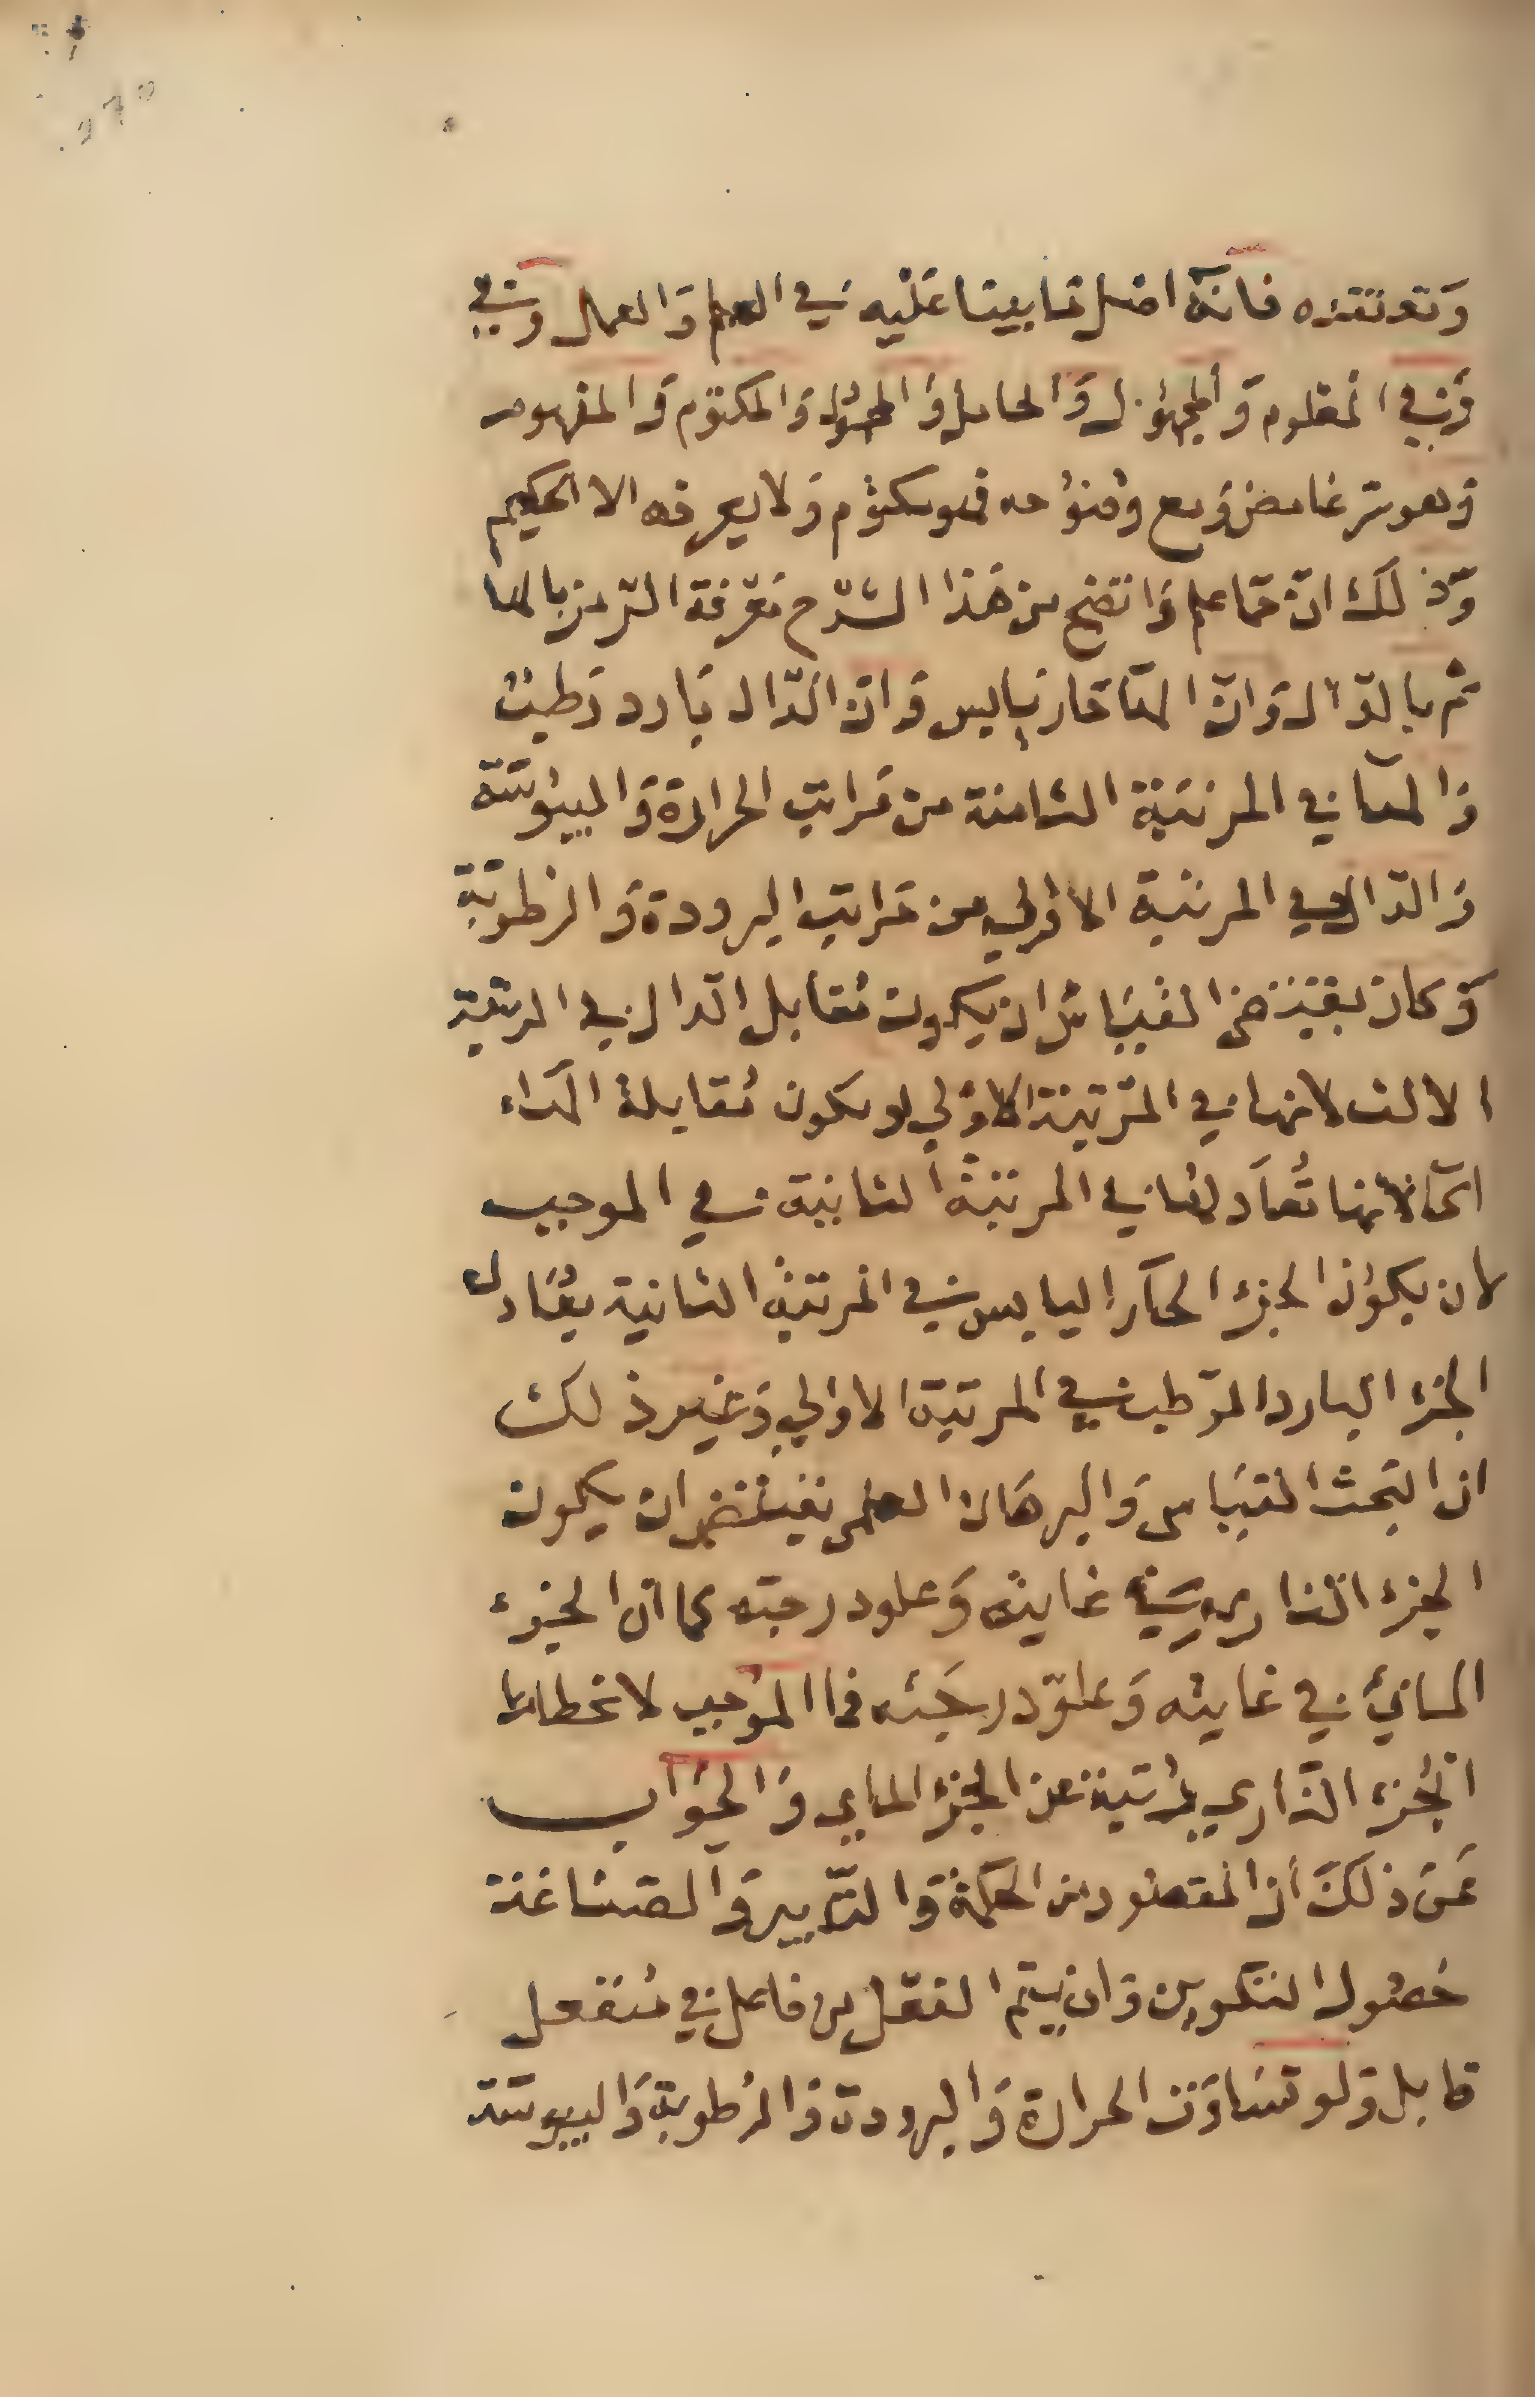 وتعتقده فانه اصل مما بينا عليه في العلم والعمل وفي
وفي المعلوم والمجهول والحامل والمحمول والمكتوم والمفهوم
وهو سر غامض ومع وضوحه فهو مكتوم ولا يعرفه الا الحكيم
وذلك ان مما علم واتضح من هذا الشرح معرفة الترمز بالها
ثم بالدال وان الها حار يابس وان الدال بارد رطب
والها في المرتبة الثامنة من مراتب الحرارة واليبوسة
والدال في المرتبة الاولي من مراتب البرودة والرطوبة
وكان يقتضي القياس ان يكون مقابل الدال في المرتبة
الالف لانها في المرتبة الاولي او يكون مقابلة الهاء
الحا لانها تعادلها في المرتبة الثانية في الموجب
لان يكون الجزء الحار اليابس في المرتبة الثانية يعادل
الجزء البارد الرطب في المرتبة الاولي وغير ذلك
ان البحث القياس والبرهان العلمي يقتضي ان يكون
الجزء الناري في غايته وعلو درجته كما ان الجزء
المائي في غايته وعلو درجته فما الموجب لانحطاط
الجزء الناري بمرتبة عن الجزء الماي والجواب
عن ذلك ان المقصود من الحكمة والتدبير والصناعة
حصول التكوين وان يتم الفعل من فاعل في منفعل
قابل ولو تساوت الحرارة والبرودة والرطوبة واليبوسة